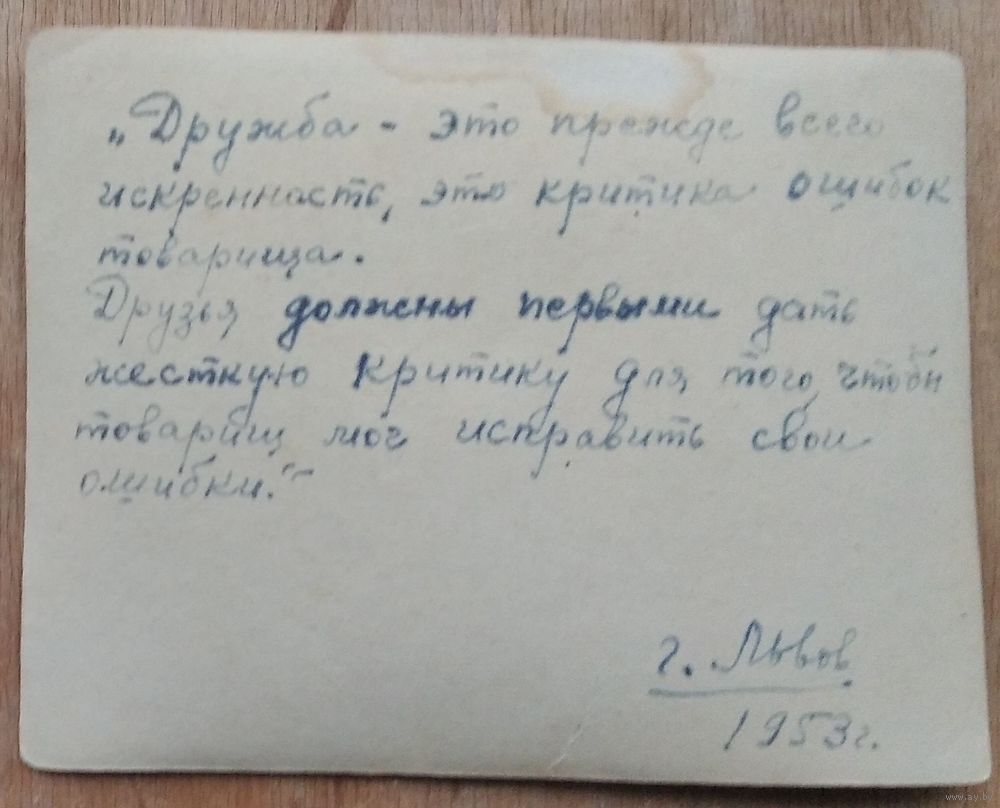 „Дружба - это прежде всего
искренность, это критика ошибок
товарища.
Друзья должны первыми дать
жесткую критику для того, чтобы
товарищ мог исправить свои
ошибки.“
г. Львов
1953г.
www.ay.by